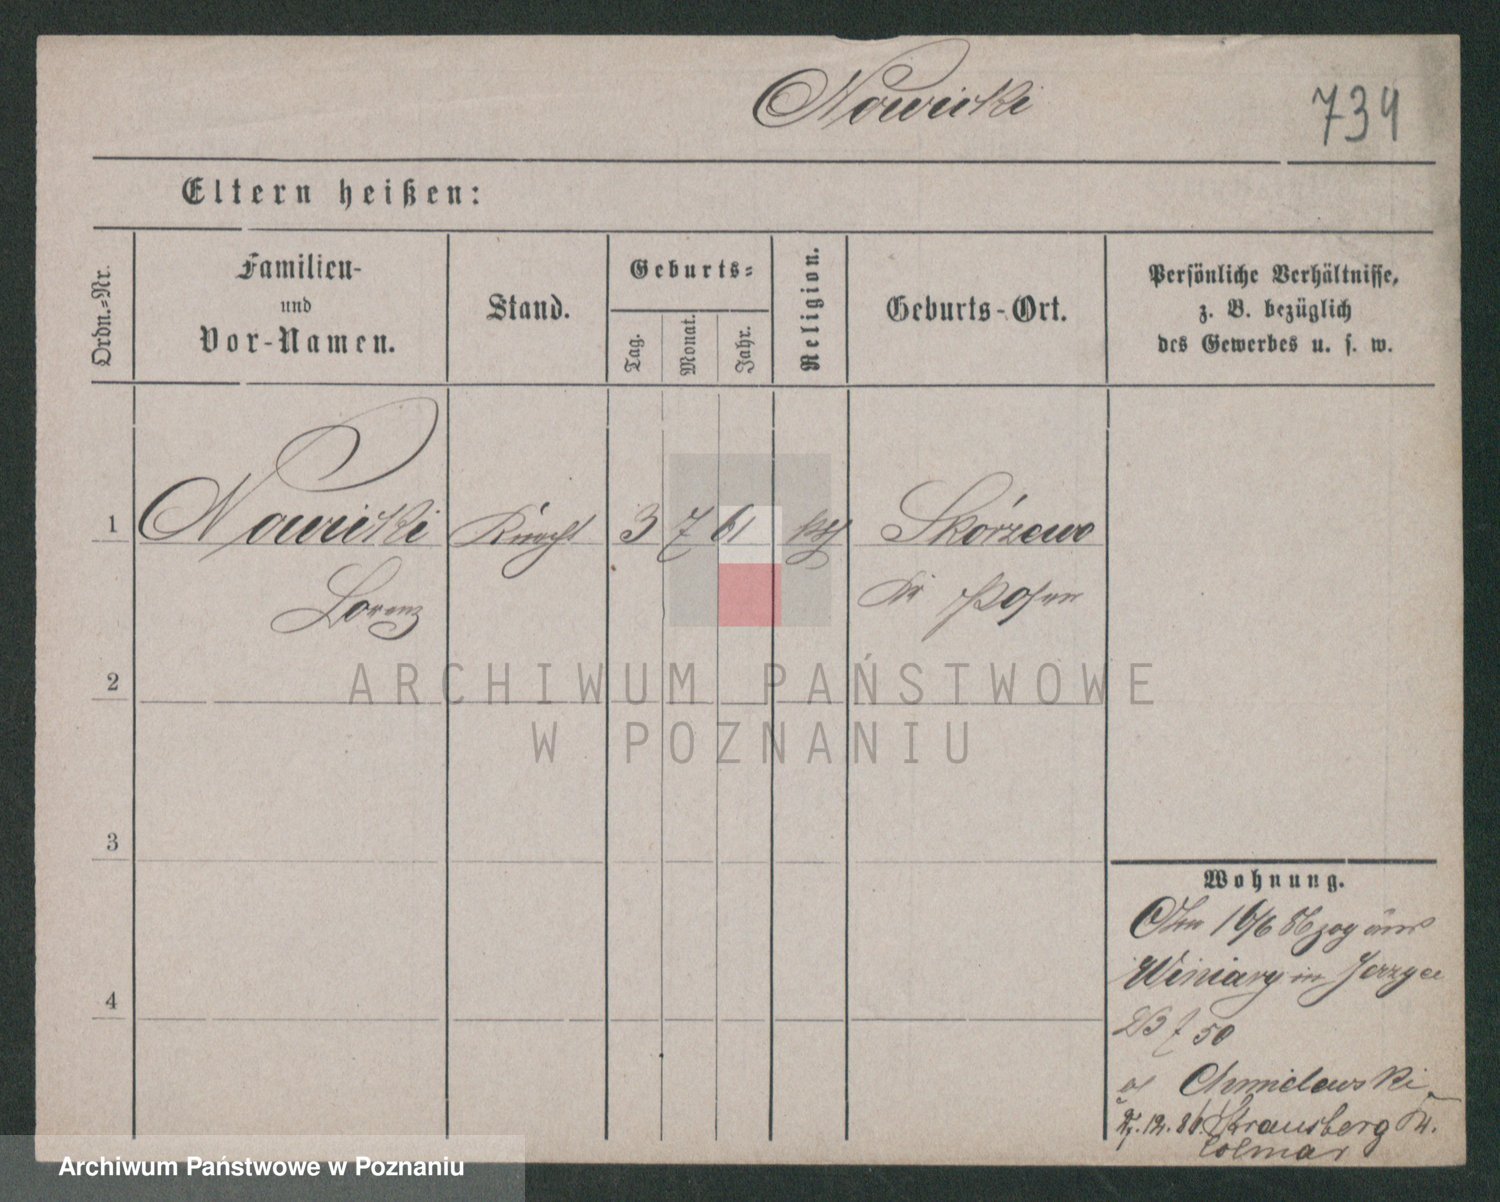 Nowicki
734
Eltern heißen:
Ordn.-Nr.
Familien-
und
Vor-Namen.
Stand.
Geburts-
Tag.
Monat.
Jahr.
Religion.
Geburts-Ort.
Persönliche Verhältnisse,
z. B. bezüglich
des Gewerbes u. s. w.
1 Nowicki Knecht 3 7 61 kth Skórzewo
Lorenz Kr Posen
2
ARCHIWUM PAŃSTWOWE
W POZNANIU
3
Wohnung.
16/6 86 zog aus
Winiary in Jerzyce
4
50
Chmielewski
27.12.86. Strausberg Kr.
Colmar
Archiwum Państwowe w Poznaniu